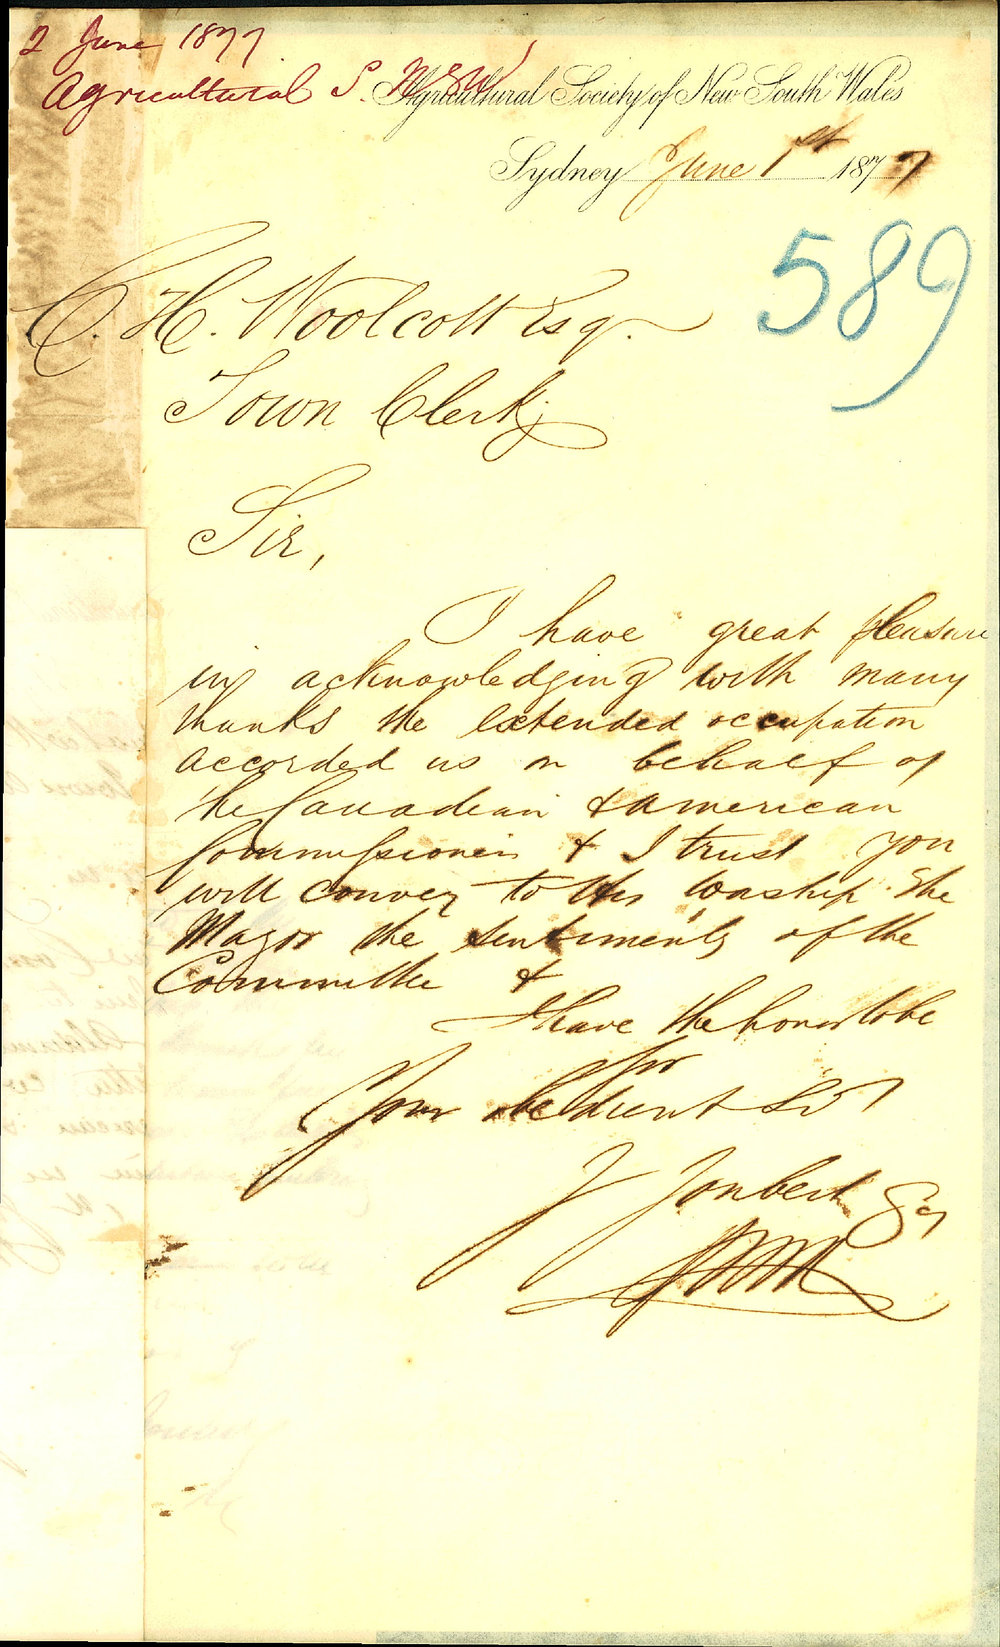 2 June 1877
Agricultural S. NSW
Agricultural Society of New South Wales
Sydney June 1st 1877
589
C. H. Woolcott Esq.
Town Clerk
Sir,
I have great pleasure
in acknowledging with many
thanks the extended occupation
accorded us on behalf of
the Canadian & American
Commissioners & I trust you
will convey to His Worship the
Mayor the sentiments of the
Committee &
I have the honor to be
Sir
Your obedient Svt
J Joubert Sey